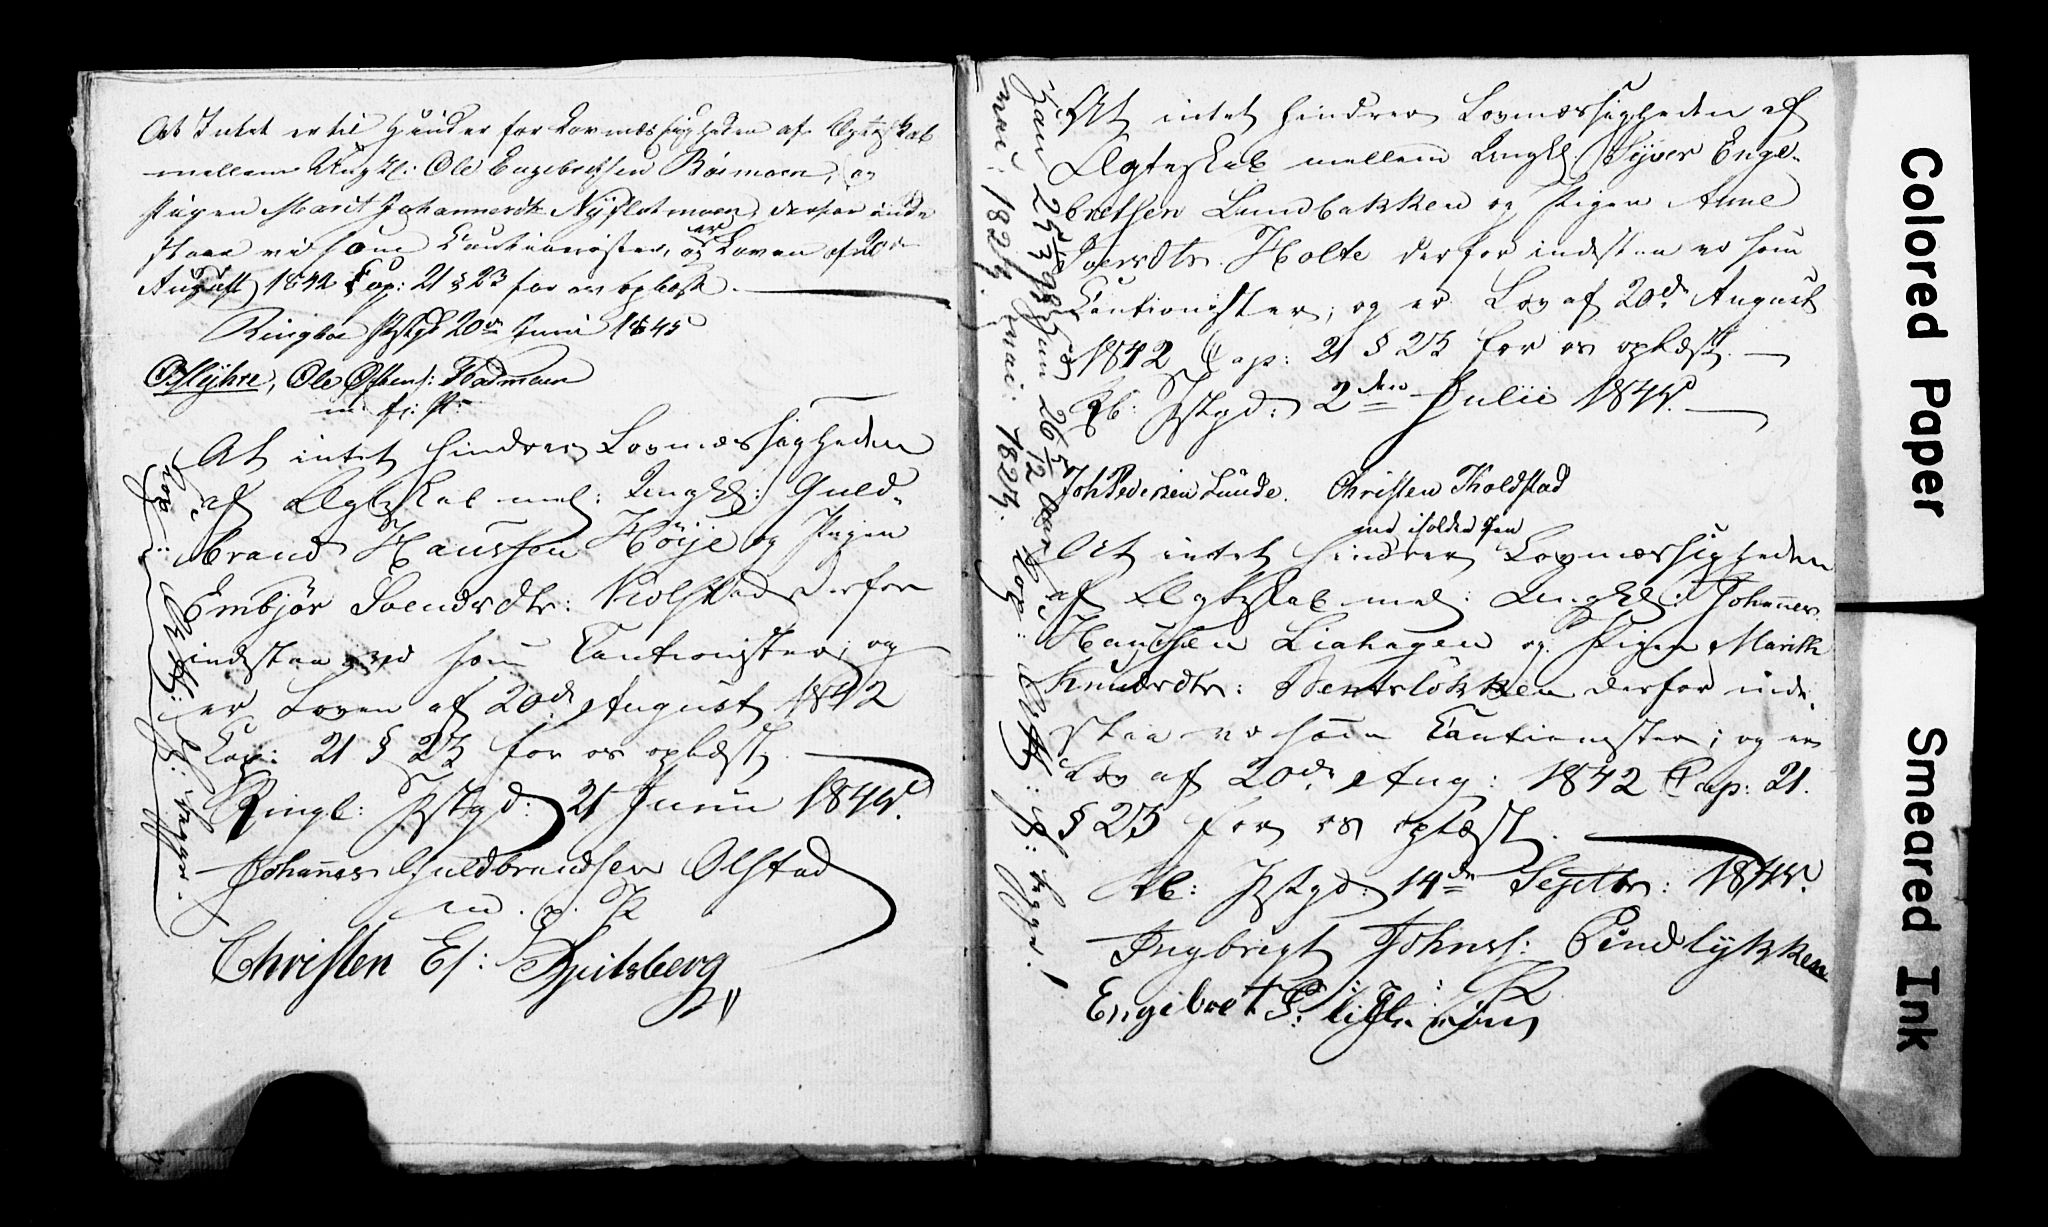 At Intet er til Hinder for Lovmæssigheden af Ægteskab
mellem Ungk: Ole Engebrethsen Børmoen, og
Pigen Marit Johannesdtr Nyflotmoen, derfor inde
staae vi som Cautionister, og er Loven af 20de
August 1842 Cap: 21 § 23 for os oplæst.
Ringboe Pstgd 20de Junii 1845
Ole
m. f: P:
At intet hindrer Lovmæssigheden
af Ægteskab mel: Ungk: Guld-
brand Hanssen Høije og Pigen
Embjør Svendsdtr: Kiolstad derfor
indstaa vi som Cautionister; og
er Loven af 20de August 1842
Cap: 21 § 23 for os oplæst.
Ringb: Pstgd: 21 Junii 1845.
Johannes Guldbrandsen Olstad
m. p. P.
Christen Es: Spitsberg
At intet hindrer Lovmæssigheden af
Ægteskab mellem Ungk: Syver Enge-
brethsen Lundbakken og Pigen Anne
Iversdtr. Holte derfor indestaa vi som
Cautionister; og er Lov af 20de August
1842 Cap: 21 § 23 for os oplæst.
Rb: Pstgd: 2den Julii 1845.
Joh Pedersen Lunde. Christen Koldstad
med iholden Pen
At intet hindrer Lovmæssigheden
af Ægteskab mel: Ungk: Johannes
Hanssen Liahagen og Pigen Marith
Knudsdtr: Bentsløkken derfor inde-
staa vi som Cautionister; og er
Lov af 20de Aug: 1842 Cap: 21.
§ 23 for os oplæst.
Rb: Pstgd: 14de Septbr: 1845.
Ingbrigt Johnss: Lindlykken
Engebret P:
Colored Paper
Smeared Ink